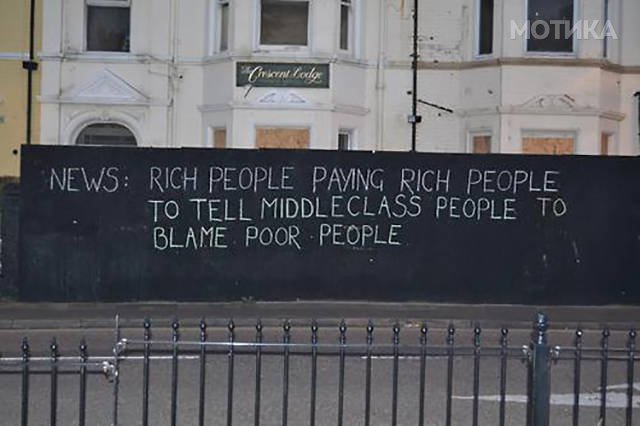 МОТИКА
The Crescent Lodge
NEWS: RICH PEOPLE PAYING RICH PEOPLE
TO TELL MIDDLECLASS PEOPLE TO
BLAME POOR PEOPLE